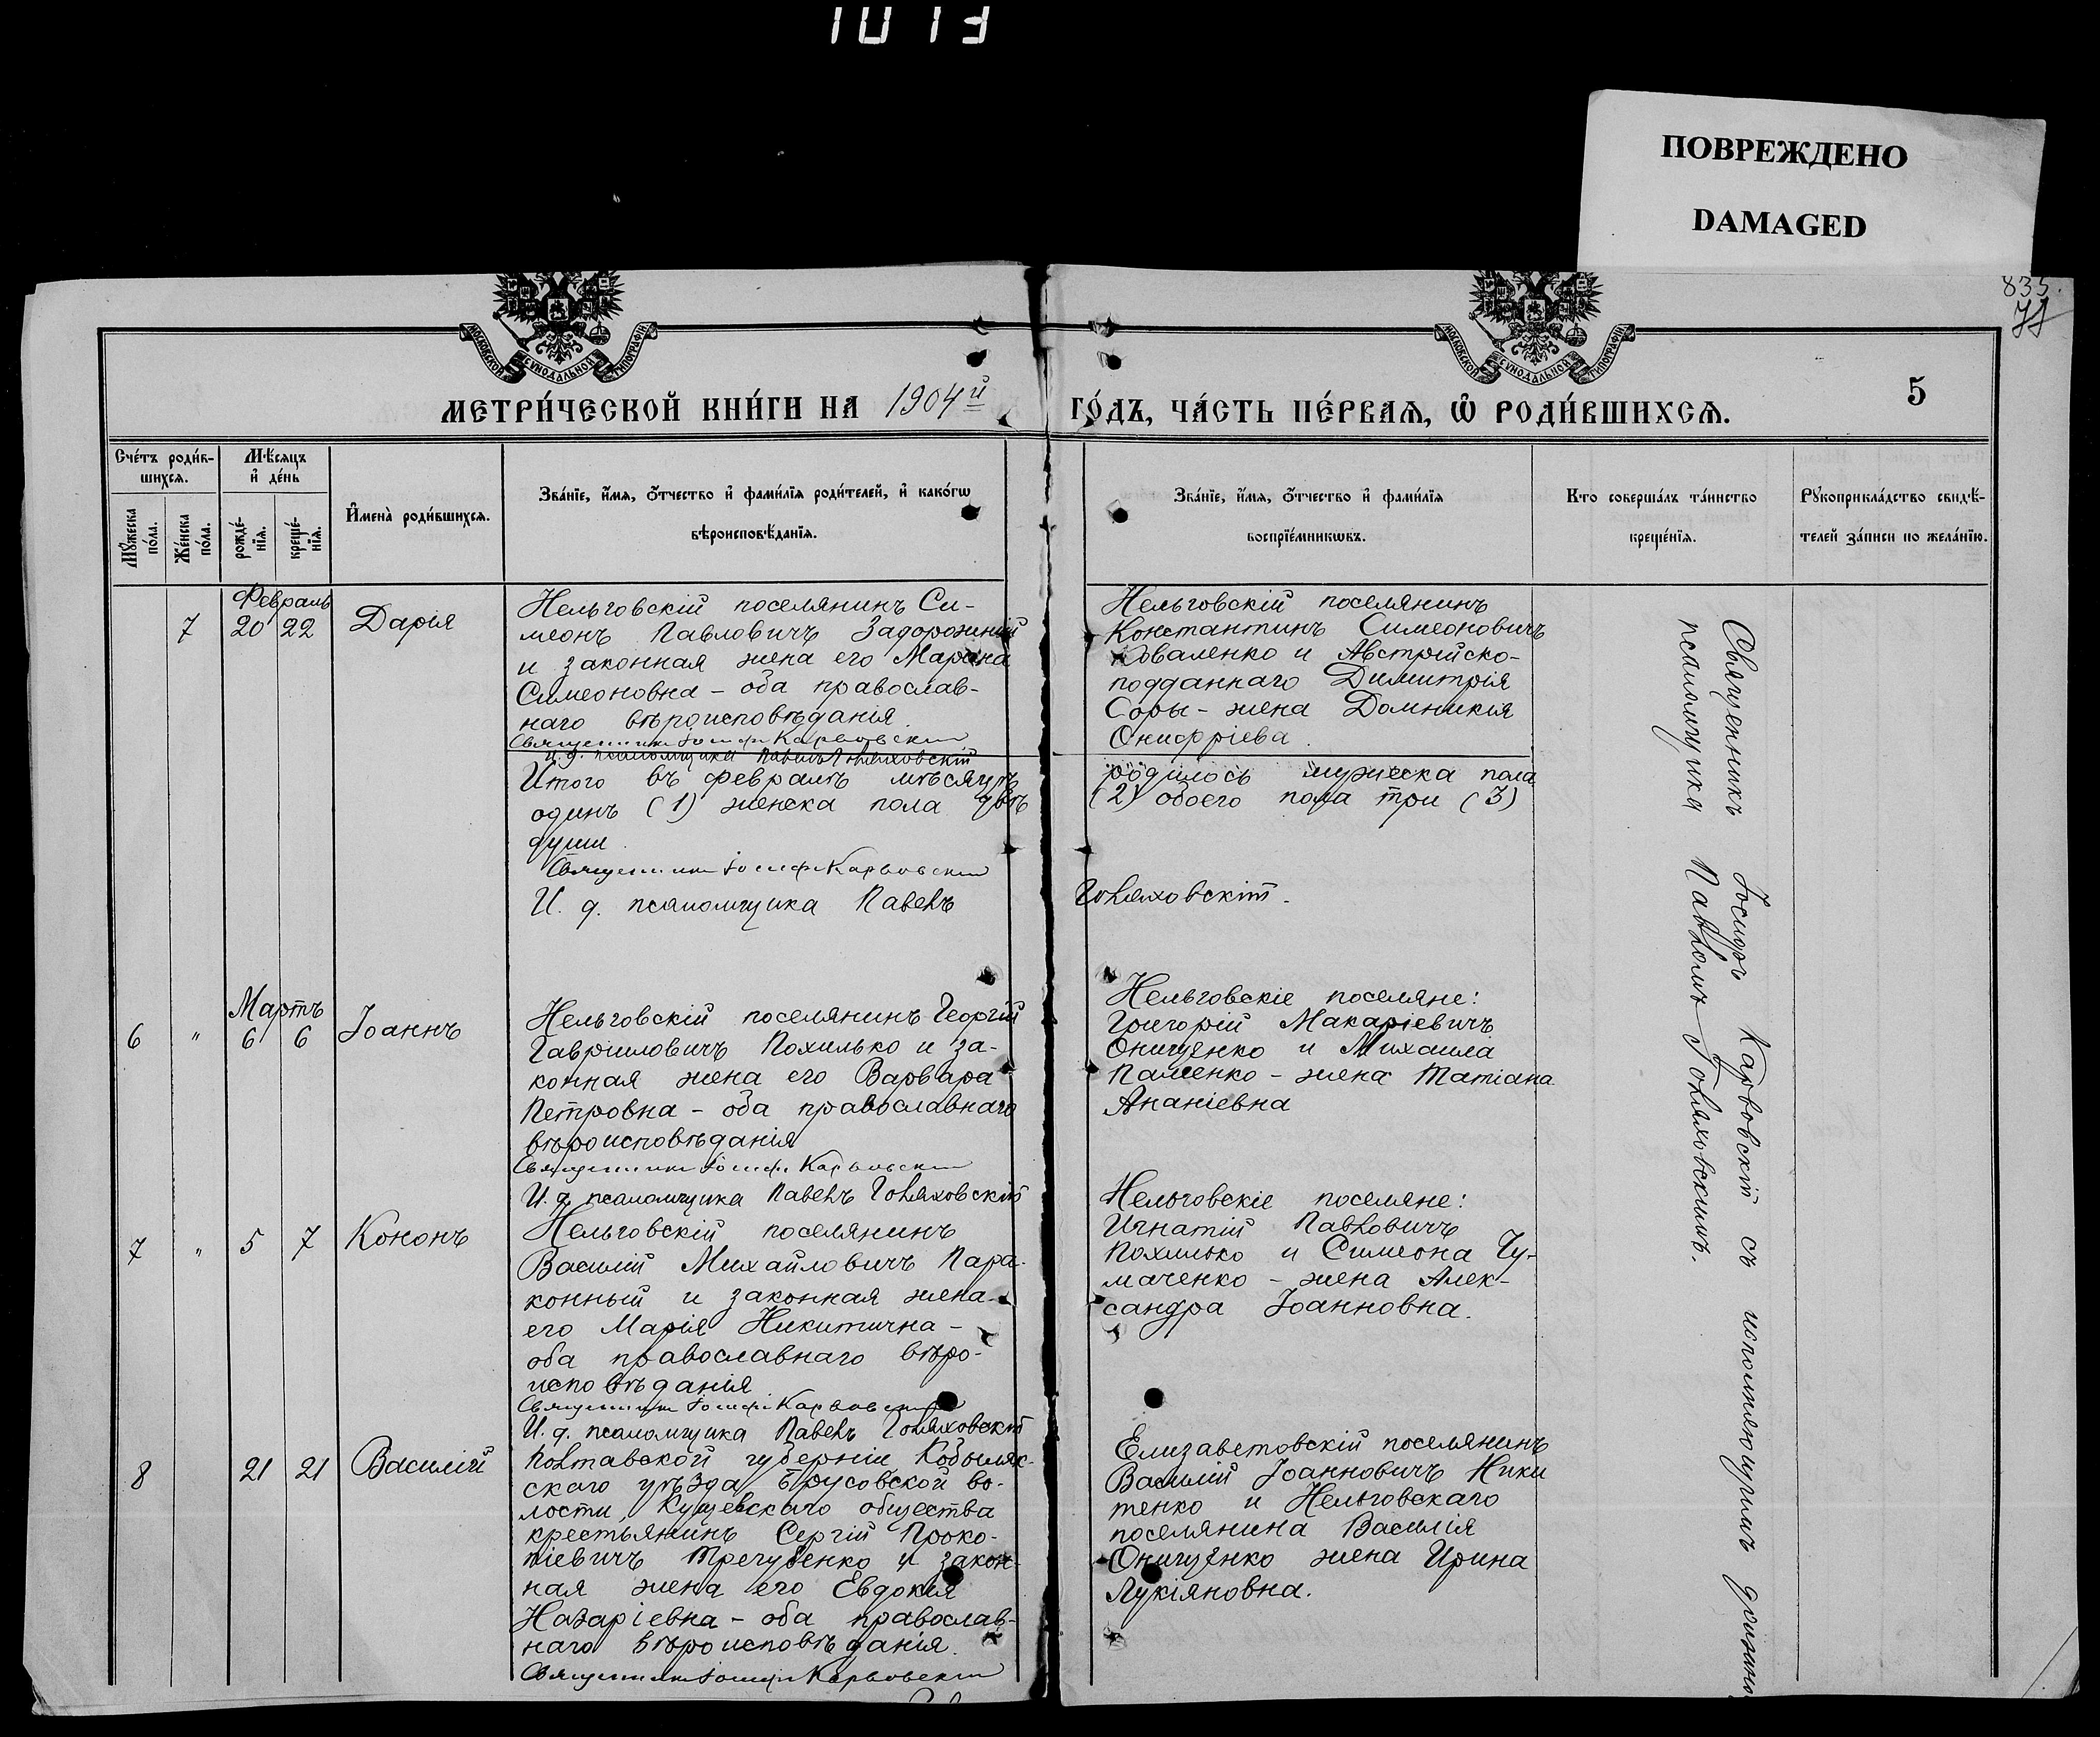 1013
ПОВРЕЖДЕНО
DAMAGED
835.
71
МОСКОВСКОЙ СѴНОДАЛЬНОЙ ТИПОГРАФІИ
МОСКОВСКОЙ СѴНОДАЛЬНОЙ ТИПОГРАФІИ
5
МЕТРИ́ЧЕСКОЙ КНИ́ГИ НА 1904й
ГО́ДЪ, ЧА́СТЬ ПЕ́РВАѦ, Ѡ҆ РОДИ́ВШИХСѦ.
Сче́тъ роди́в-
шихсѧ.
Мꙋ́жеска
по́ла.
Же́нска
по́ла.
Мѣ́сѧцъ
и҆ де́нь
рожде́-
нїѧ.
креще́-
нїѧ.
И҆мена̀ роди́вшихсѧ.
Зва́нїе, и҆́мѧ, ѻ҆́тчество и҆ фами́лїѧ роди́телей, и҆ како́гѡ
вѣроисповѣ́данїѧ.
Зва́нїе, и҆́мѧ, ѻ҆́тчество и҆ фами́лїѧ
воспрїе́мникѡвъ.
Кто соверша́лъ та́инство
креще́нїѧ.
Рꙋкоприкла́дство свидѣ́-
телей за́писи по жела́нїю.
Февраль
7 20 22 Дарія
Нельговскій поселянинъ Си-
меонъ Павловичъ Задорожній
и законная жена его Марина
Симеоновна - оба православ-
наго вѣроисповѣданія.
Священникъ Іосифъ Карвовскій
И. д. псаломщика Павелъ Голяховскій
Нельговскій поселянинъ
Константинъ Симеоновичъ
Коваленко и Австрійско-
подданнаго Димитрія
Соры - жена Домникія
Онифріева.
Итого въ февралѣ мѣсяцѣ
одинъ (1) женска пола двѣ
души.
родилось мужеска пола
(2) обоего пола три (3)
Священникъ Іосифъ Карвовскій
И. д. псаломщика Павелъ Голяховскій.
Мартъ
6 " 6 6 Іоаннъ
Нельговскій поселянинъ Георгій
Гавриловичъ Похилько и за-
конная жена его Варвара
Петровна - оба православнаго
вѣроисповѣданія
Священникъ Іосифъ Карвовскій
И. д. псаломщика Павелъ Голяховскій
Нельговскіе поселяне:
Григорій Макаріевичъ
Онищенко и Михаила
Паленко - жена Татіана
Ананіевна
7 " 5 7 Кононъ
Нельговскій поселянинъ
Василій Михайловичъ Пара-
конный и законная жена
его Марія Никитична -
оба православнаго вѣро-
исповѣданія
Священникъ Іосифъ Карвовскій
И. д. псаломщика Павелъ Голяховскій
Нельговскіе поселяне:
Игнатій Павловичъ
Похилько и Симеона Чу-
маченко - жена Алек-
сандра Іоанновна.
8 21 21 Василій
Полтавской губерніи Кобыляк-
скаго уѣзда Брусовской во-
лости, Кущевскаго общества
крестьянинъ Сергій Проко-
піевичъ Трегубенко и закон-
ная жена его Евдокія
Назаріевна - оба православ-
наго вѣроисповѣданія.
Священникъ Іосифъ Карвовскій
Елизаветовскій поселянинъ
Василій Іоанновичъ Ники
тенко и Нельговскаго
поселянина Василія
Онищенко жена Ирина
Лукіяновна.
Священникъ Іосифъ Карвовскій съ исполняющимъ должность
псаломщика Павломъ Голяховскимъ.